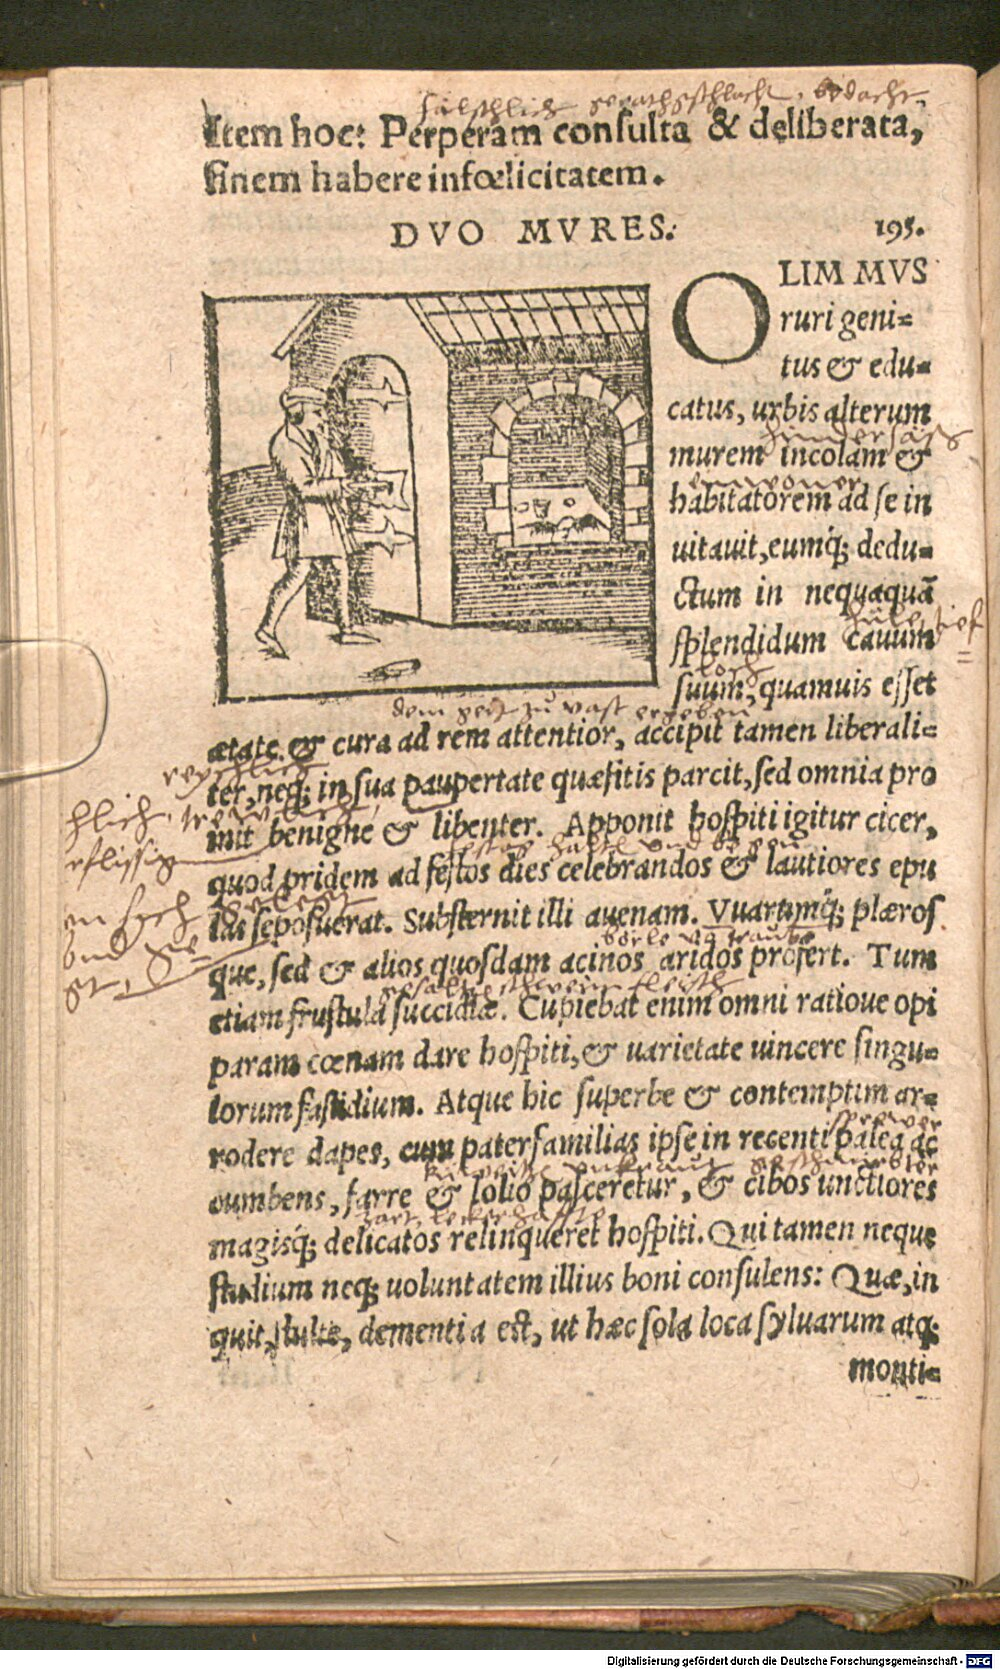 fälschlich
Item hoc: Perperam consulta & deliberata,
finem habere infœlicitatem.
DVO MVRES. 195.
OLIM MVS
ruri geni=
tus & edu=
catus, urbis alterum
murem incolam &
einwoner
habitatorem ad se in
uitauit, eumq́; dedu=
ctum in nequaquā
tief
splendidum cauum
loch
suum, quamuis esset
ætate & cura ad rem attentior, accipit tamen liberali=
ter, neq; in sua paupertate quæsitis parcit, sed omnia pro
mit benigne & libenter. Apponit hospiti igitur cicer,
quod pridem ad festos dies celebrandos & lautiores epu
las seposuerat. Substernit illi auenam. Vuarumq́; plæros
que, sed & alios quosdam acinos aridos profert. Tum
etiam frustula succidiæ. Cupiebat enim omni ratioue opi
param cœnam dare hospiti, & uarietate uincere singu=
lorum fastidium. Atque hic superbe & contemptim ar=
rodere dapes, cum paterfamilias ipse in recenti palea ac
cumbens, farre & lolio pasceretur, & cibos unctiores
magisq́; delicatos relinqueret hospiti. Qui tamen neque
studium neq; uoluntatem illius boni consulens: Quæ, in
quit, stulte, dementia est, ut hæc sola loca syluarum atq;
monti=
Digitalisierung gefördert durch die Deutsche Forschungsgemeinschaft - DFG